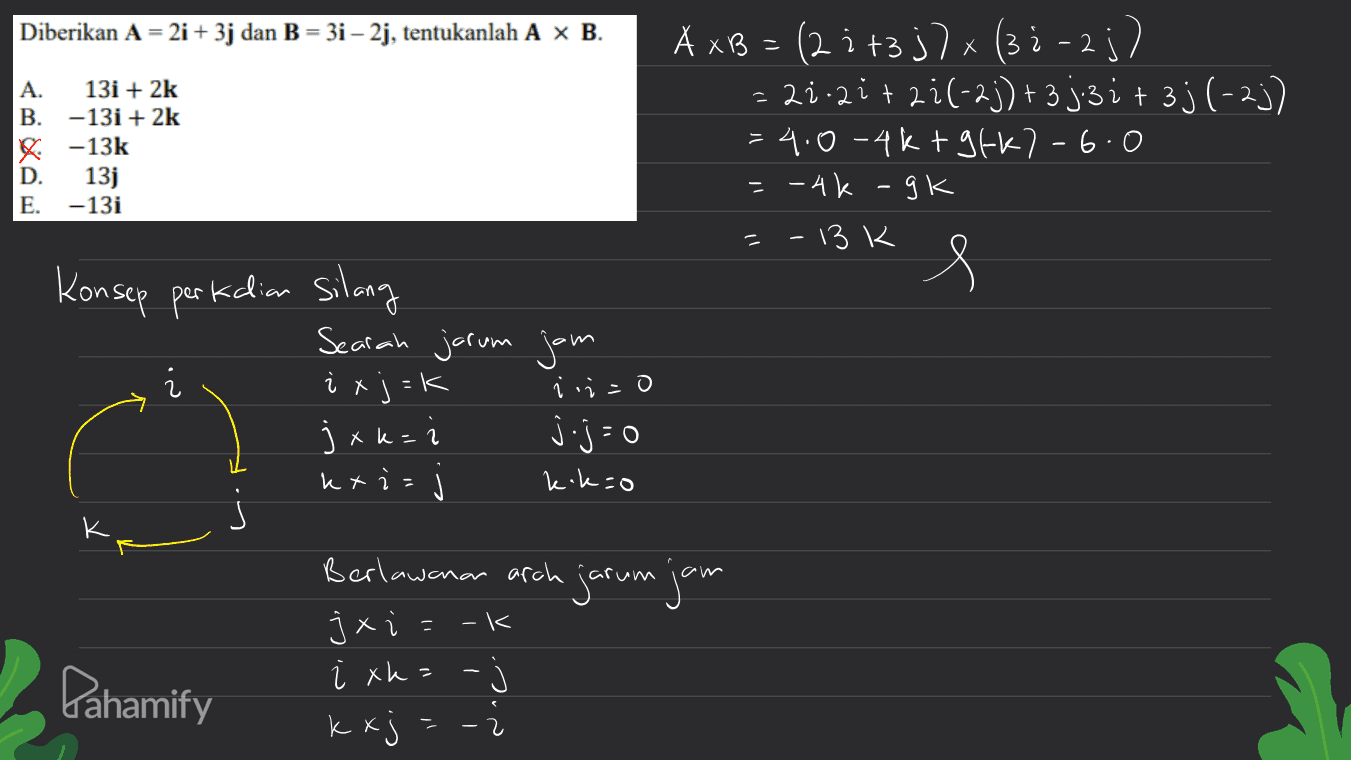 Diberikan A = 2i + 3j dan B = 3i – 2j, tentukanlah A × B.
A. 13i + 2k
B. −13i + 2k
C. −13k
D. 13j
E. −13i
A x B = (2i + 3j) x (3i - 2j)
= 2i·2i + 2i(-2j) + 3j·3i + 3j(-2j)
= 4·0 - 4k + 9(-k) - 6·0
= -4k - 9k
= -13k
Konsep perkalian silang
Searah jarum jam
i x j = k i·i = 0
j x k = i j·j = 0
k x i = j k·k = 0
i
j
k
Berlawanan arah jarum jam
j x i = -k
i x k = -j
k x j = -i
Pahamify